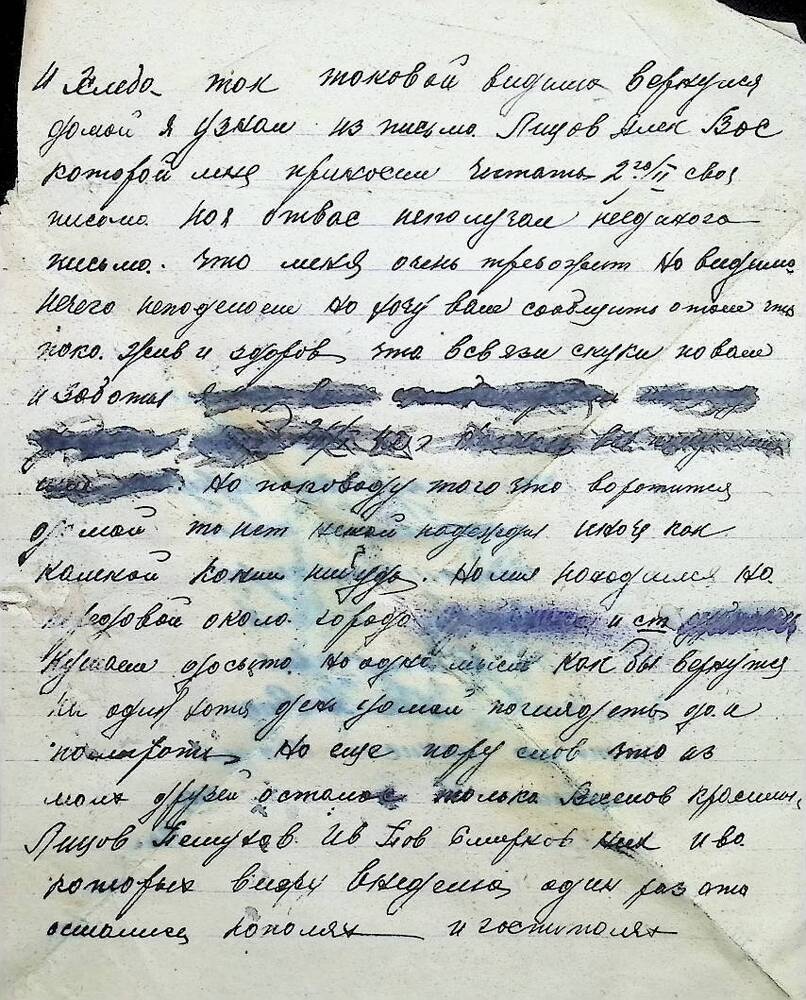 И Хлеба так таковой видима вернулся
домой я узнал из письма Лицов Алек Вас
которой мне приносил читать 2го/II своя
письмо Ноя отвас неполучал неединого
письма. что меня очень тревожит Но видимо
нечего неподелаеш Но хочу вам сообщить отом что
пока жив и здоров что всвязи скуки по вам
и заботы
Но паповоду того что воротится
домой то нет некой надежды иначе как
калекой каким нибудь. Намия находимся на
передовой около города и ст
Кушаем досыта но одна мысль как бы вернутся
на один хотя день домой поглядеть да и
помирать Но еще пару слов что из
моих друзей осталос только
Лицов Петухов Ив Пав Смирнов Ник Ива
которых вижу внеделю один раз ото
остались пополях и госпиталях